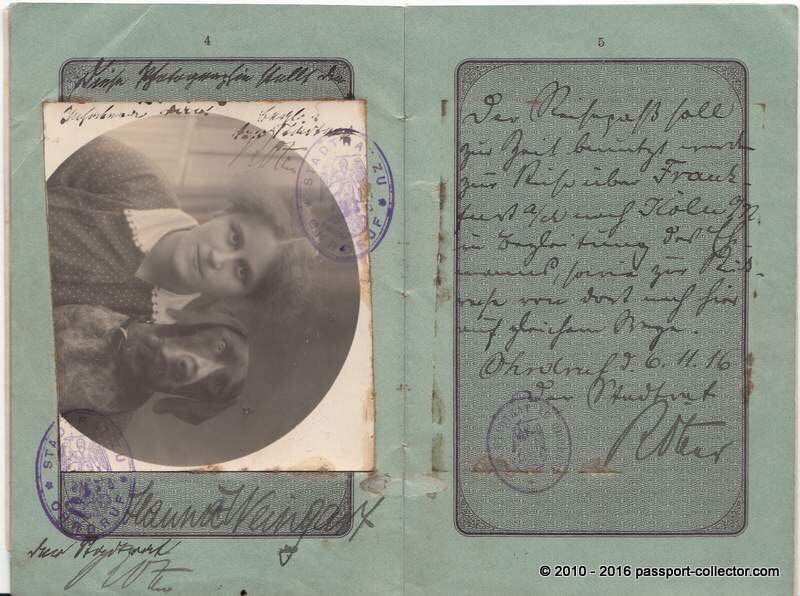 4
Diese Photographie stellt den
STADTRAT ZU OHRDRUF
Johanna Weingart
der Stadtrat
5
Der Reisepaß soll
zur Zeit benutzt werden
zur Reise über Frank-
furt a/M nach Köln a/R.
in Begleitung des Ehe-
manns, sowie zur Rück-
reise von dort nach hier
auf gleichem Wege.
Ohrdruf d. 6.11.16
Der Stadtrat
STADTRAT ZU OHRDRUF
© 2010 - 2016 passport-collector.com